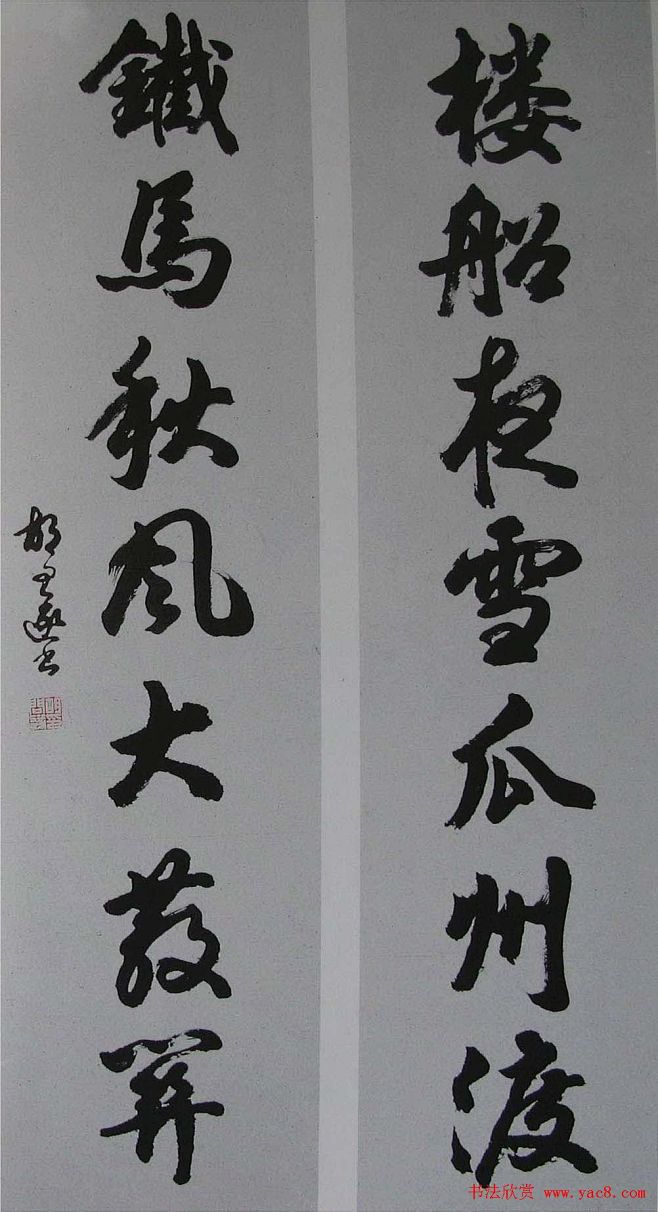 楼船夜雪瓜州渡
鐵馬秋風大散関
胡公遂书
书法欣赏 www.yac8.com